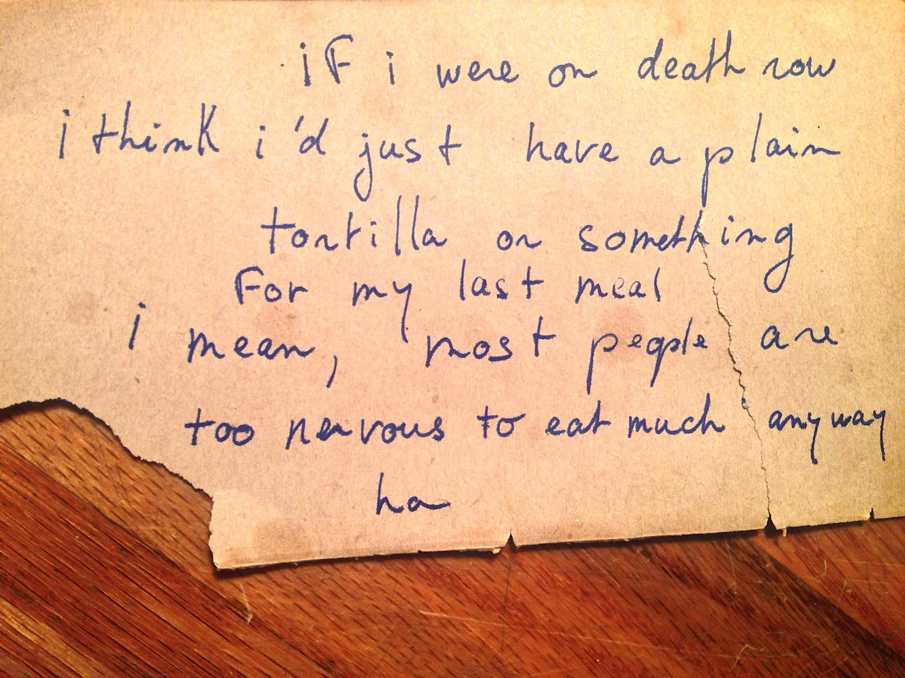 iF i were on death row
i think i'd just have a plain
tortilla or something
For my last meal
i mean, most people are
too nervous to eat much anyway
ha